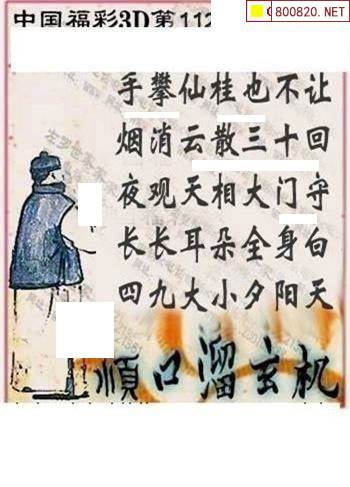 中国福彩3D第112
800820.NET
手攀仙桂也不让
烟消云散三十回
夜观天相大门守
长长耳朵全身白
四九大小夕阳天
順口溜玄机